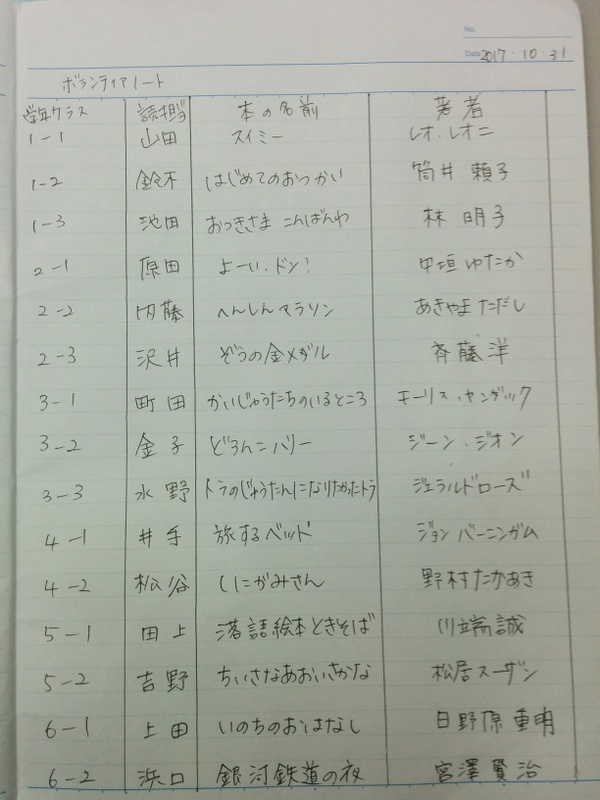 No.
Date 2017・10・31
ボランティアノート
学年クラス 読担当 本の名前 著者
1-1 山田 スイミー レオ・レオニ
1-2 鈴木 はじめてのおつかい 筒井 頼子
1-3 池田 おつきさま こんばんわ 林 明子
2-1 原田 よーい・ドン! 中垣 ゆたか
2-2 内藤 へんしんマラソン あきやま ただし
2-3 沢井 ぞうの金メダル 斉藤 洋
3-1 町田 かいじゅうたちのいるところ モーリス・センダック
3-2 金子 どろんこハリー ジーン・ジオン
3-3 水野 トラのじゅうたんになりたかったトラ ジェラルドローズ
4-1 井手 旅するベッド ジョン バーニンガム
4-2 松谷 しにがみさん 野村たかあき
5-1 田上 落語絵本ときそば 川端誠
5-2 吉野 ちいさなあおいさかな 松居スーザン
6-1 上田 いのちのおはなし 日野原 重明
6-2 浜口 銀河鉄道の夜 宮澤 賢治